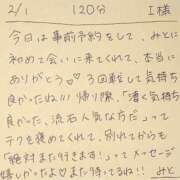 2/1 120分 I様
今日は事前予約をして、みとに
初めて会いに来てくれて、本当に
ありがとう♡ 3回転して気持ち
良かったね!!! 帰り際、「凄く気持ち
良かった、流石人気な方だ」って
テクを褒めてくれて、別れてからも
「絶対また行きます!」ってメッセージ
嬉しかったよ♡また待ってるね!! みと